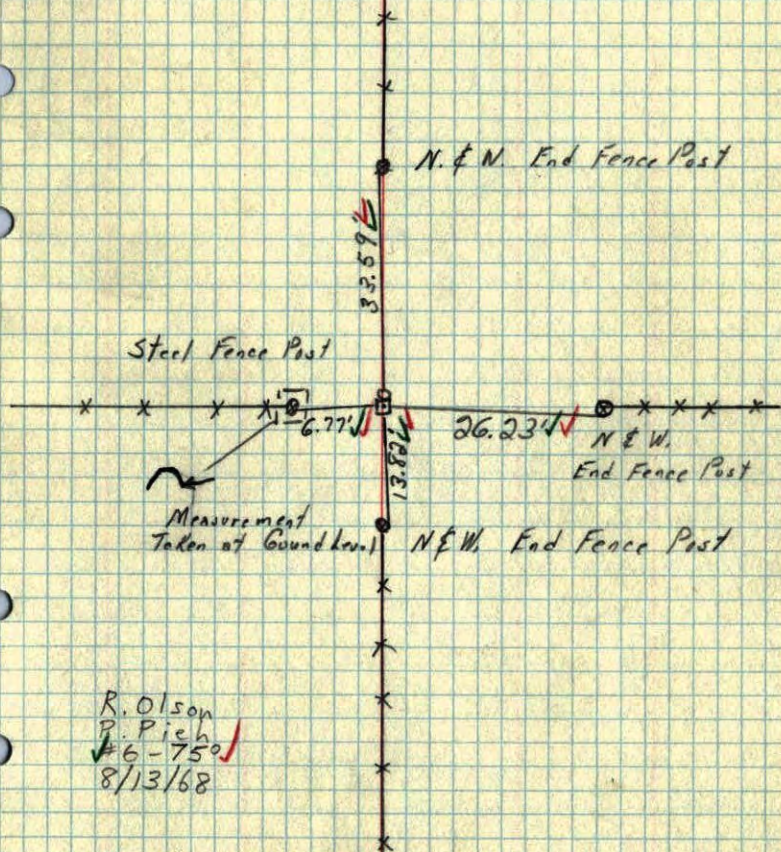 N. & N. End Fence Post
33.59'
Steel Fence Post
6.77'
26.23'
13.82'
N & W.
End Fence Post
Measurement
Taken at Gound Level
N & W. End Fence Post
R. Olson
P. Pieh
#6 - 75°
8/13/68